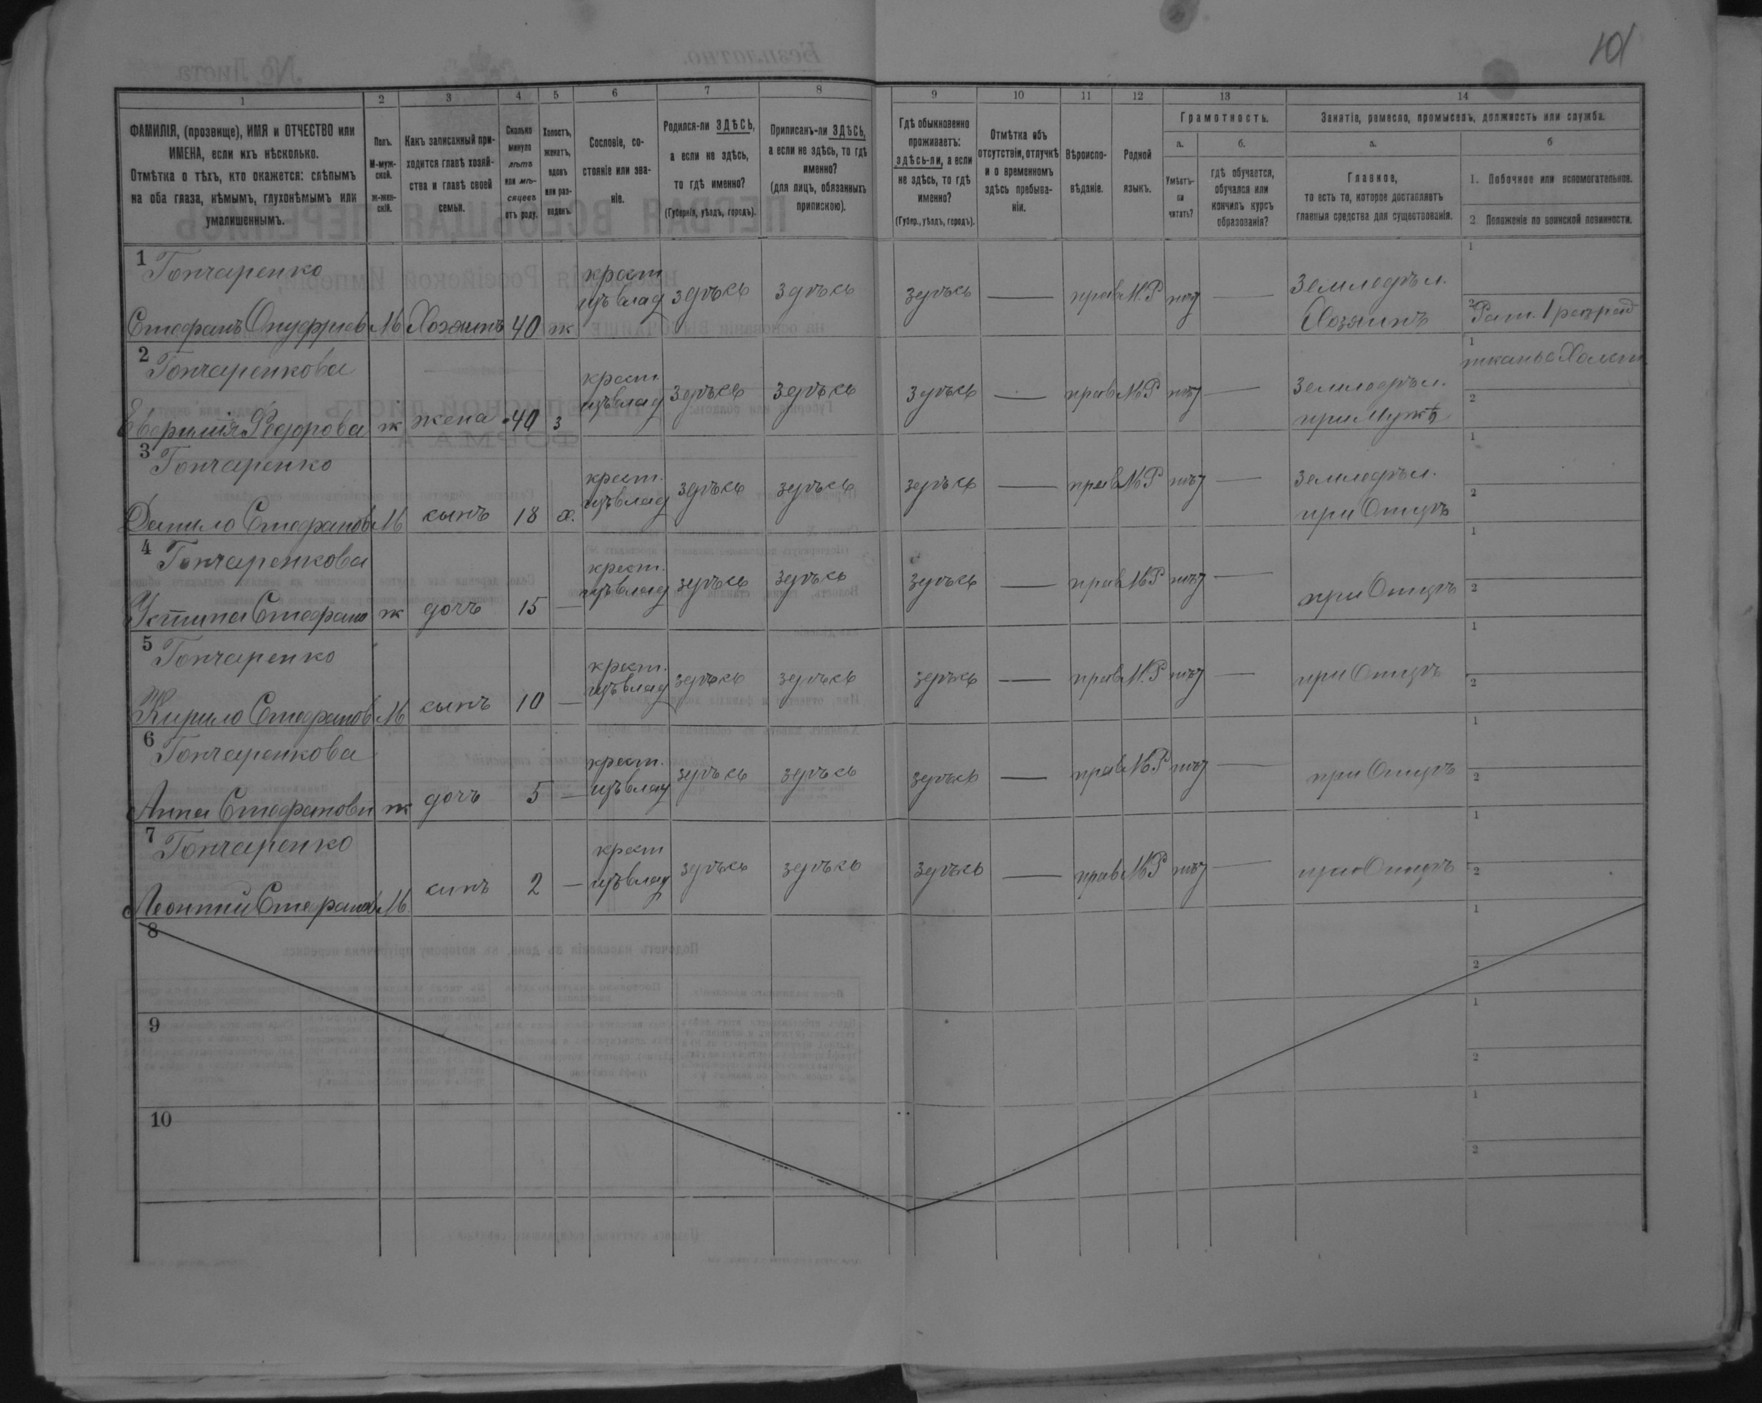 101
1 2 3 4 5 6 7 8 9 10 11 12 13 14
ФАМИЛІЯ, (прозвище), ИМЯ и ОТЧЕСТВО или
ИМЕНА, если ихъ нѣсколько.
Отмѣтка о тѣхъ, кто окажется: слѣпымъ
на оба глаза, нѣмымъ, глухонѣмымъ или
умалишеннымъ.
Полъ.
М-муж-
ской.
Ж-жен-
скій.
Какъ записанный при-
ходится главѣ хозяй-
ства и главѣ своей
семьи.
Сколько
минуло
лѣтъ
или мѣ-
сяцевъ
отъ роду.
Холостъ,
женатъ,
вдовъ
или раз-
веденъ.
Сословіе, со-
стояніе или зва-
ніе.
Родился-ли ЗДѢСЬ,
а если не здѣсь,
то гдѣ именно?
(Губернія, уѣздъ, городъ).
Приписанъ-ли ЗДѢСЬ,
а если не здѣсь, то гдѣ
именно?
(для лицъ, обязанныхъ
припискою).
Гдѣ обыкновенно
проживаетъ:
здѣсь-ли, а если
не здѣсь, то гдѣ
именно?
(Губер., уѣздъ, городъ).
Отмѣтка объ
отсутствіи, отлучкѣ
и о временномъ
здѣсь пребыва-
ніи.
Вѣроиспо-
вѣданіе.
Родной
языкъ.
Грамотность.
а.
Умѣетъ-
ли
читать?
б.
гдѣ обучается,
обучался или
кончилъ курсъ
образованія?
Занятіе, ремесло, промыселъ, должность или служба.
а.
Главное,
то есть то, которое доставляетъ
главныя средства для существованія.
б
1. Побочное или вспомогательное.
2 Положеніе по воинской повинности.
1 Гончаренко
Стефанъ Онуфріев М Хозяинъ 40 ж крест изъ влад здѣсь здѣсь здѣсь — прав М.Р нѣт — Земледѣл. Хозяинъ 1 2 Рат. 1 разряд
2 Гончаренкова
Евфимія Федорова ж жена 40 з крест. изъ влад здѣсь здѣсь здѣсь — прав М.Р нѣт — Земледѣл. при Мужѣ 1 тканье Холст 2
3 Гончаренко
Данило Стефанов М сынъ 18 х. крест. изъ влад здѣсь здѣсь здѣсь — прав М.Р нѣт — Земледѣл. при Отцѣ 1 2
4 Гончаренкова
Устина Стефано ж дочъ 15 — крест. изъ влад здѣсь здѣсь здѣсь — прав М.Р нѣт — при Отцѣ 1 2
5 Гончаренко
Кирило Стефанов М сынъ 10 — крест. изъ влад здѣсь здѣсь здѣсь — прав М.Р нѣт — при Отцѣ 1 2
6 Гончаренкова
Анна Стефанови ж дочъ 5 — крест. изъ влад здѣсь здѣсь здѣсь — прав М.Р нѣт — при Отцѣ 1 2
7 Гончаренко
Леонтій Стефанов М синъ 2 — крест изъ влад здѣсь здѣсь здѣсь — прав М.Р нѣт — при Отцѣ 1 2
8 1 2
9 1 2
10 1 2